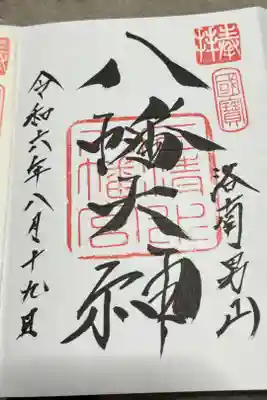 奉拝
國寶
洛南男山
八幡大神
石清水
八幡宮
令和六年八月十九日